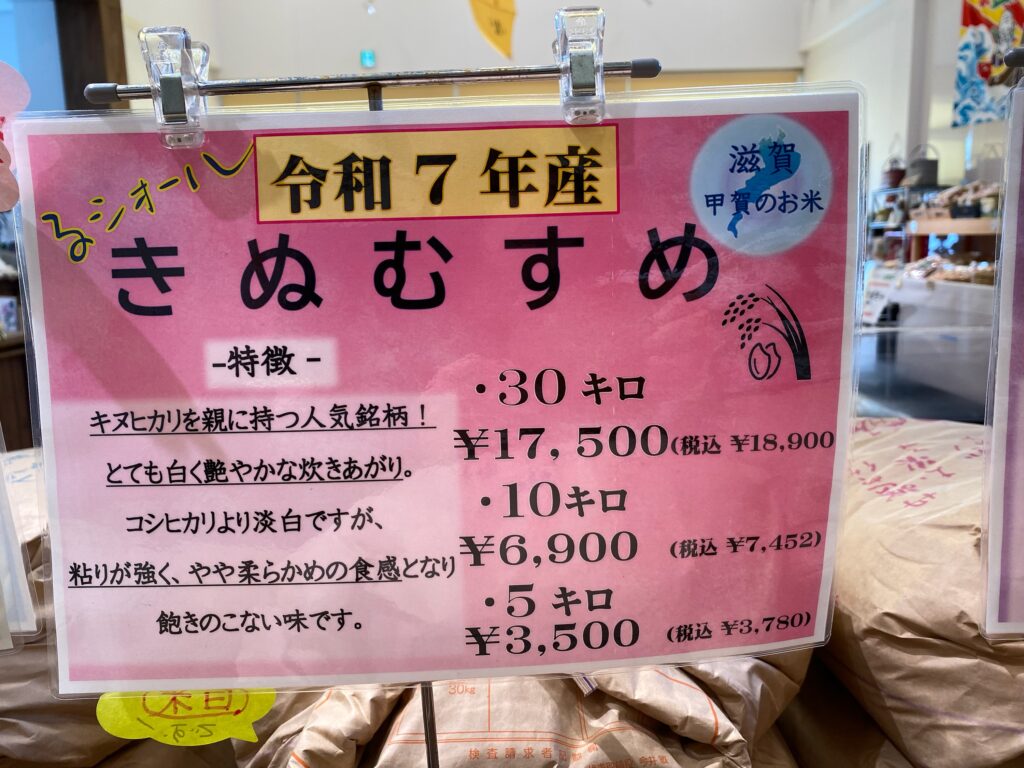 令和７年産
滋賀
甲賀のお米
きぬむすめ
-特徴-
キヌヒカリを親に持つ人気銘柄！
とても白く艶やかな炊きあがり。
コシヒカリより淡白ですが、
粘りが強く、やや柔らかめの食感となり
飽きのこない味です。
・30キロ
￥17,500(税込 ￥18,900
・10キロ
￥6,900 (税込 ￥7,452)
・5キロ
￥3,500 (税込 ￥3,780)
30kg
検査請求者